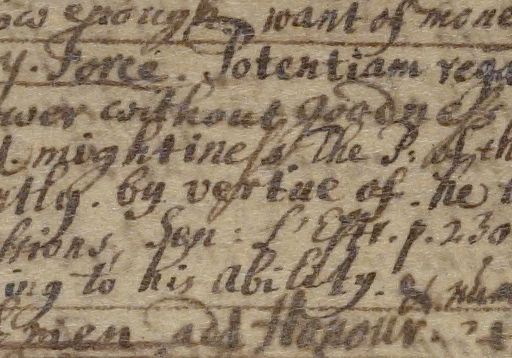 enough, want of mone
y. Force. Potentiam rega
wer without goodness
mightiness. The P: of th
tly. by vertue of. he
Sen: l'Effr. p. 230
ing to his ability.
men, add Honour.